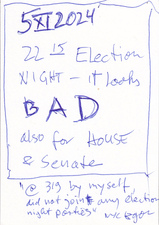 5 XI 2024
22 15 Election
NIGHT - it looks
BAD
also for HOUSE
& Senate
"@ 319 by myself,
did not join any election
night parties"